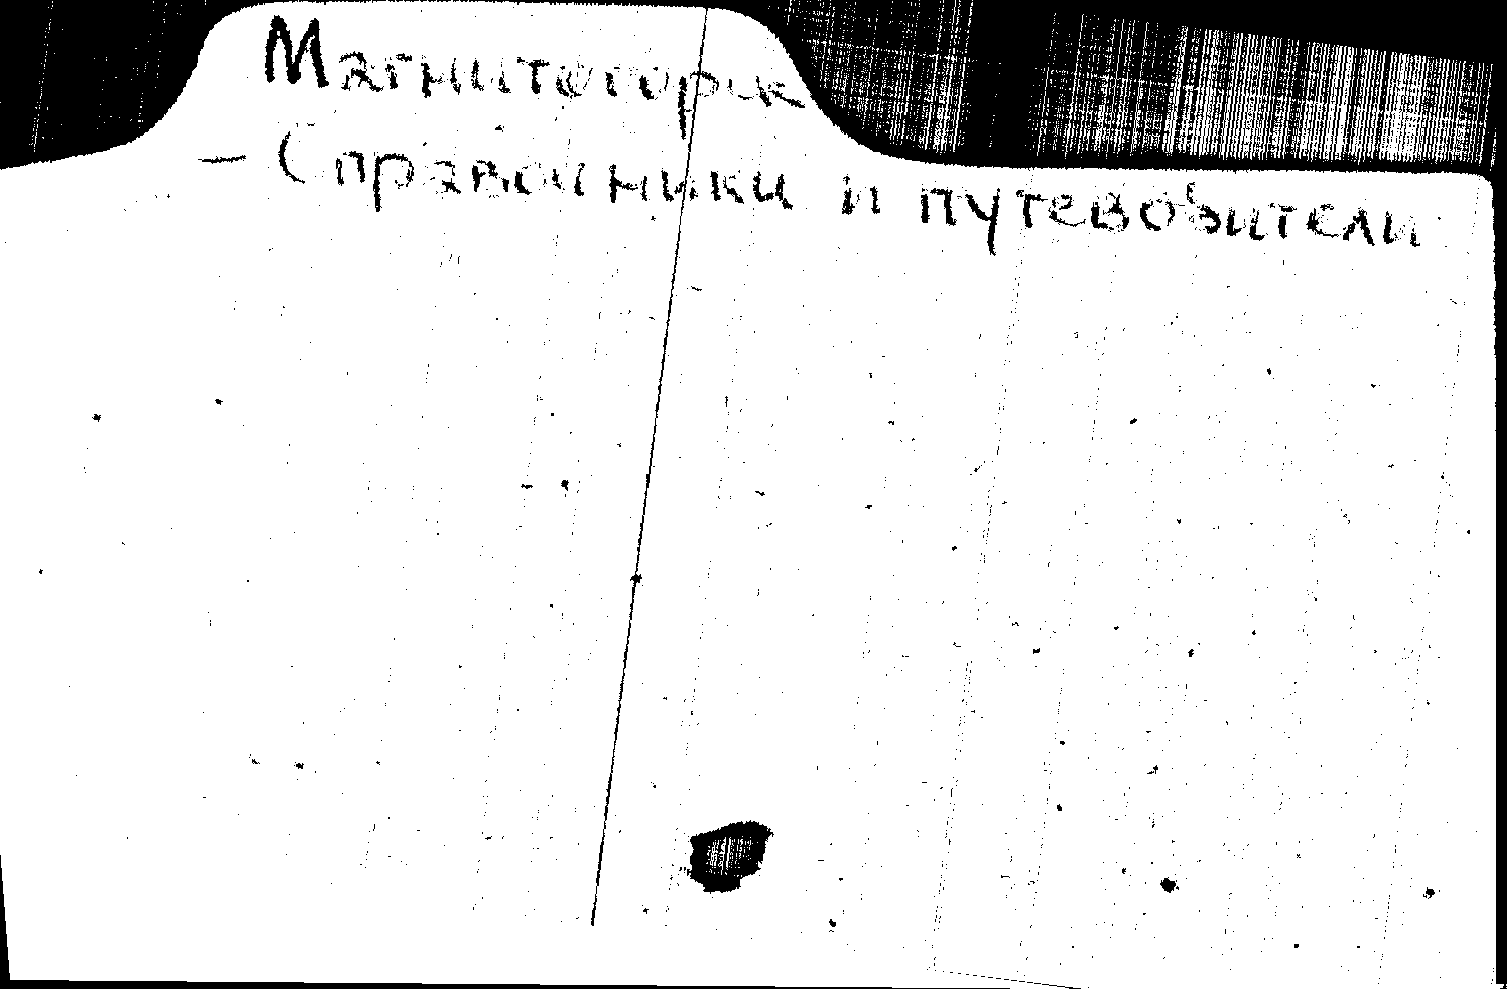 Магнитогорск
– Справочники и путеводители